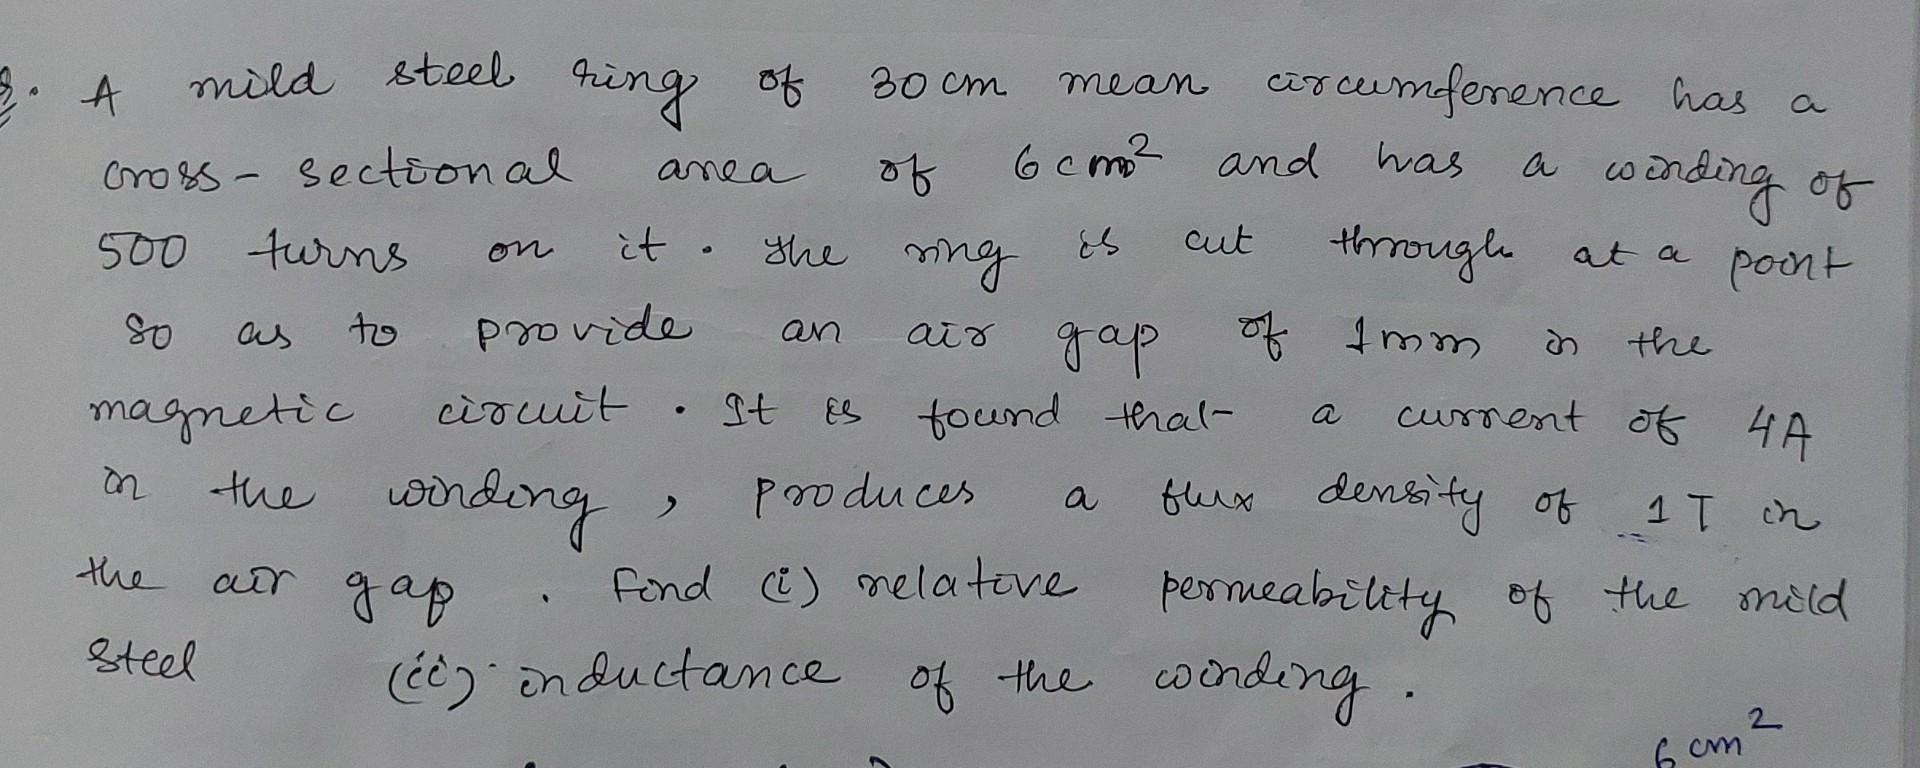 A mild steel ring of 30 cm mean circumference has a
cross-sectional area of 6 cm² and has a winding of
500 turns on it. The ring is cut through at a point
so as to provide an air gap of 1mm in the
magnetic circuit. It is found that a current of 4A
in the winding, produces a flux density of 1T in
the air gap. Find (i) relative permeability of the mild
steel (ii) inductance of the winding.
6 cm²